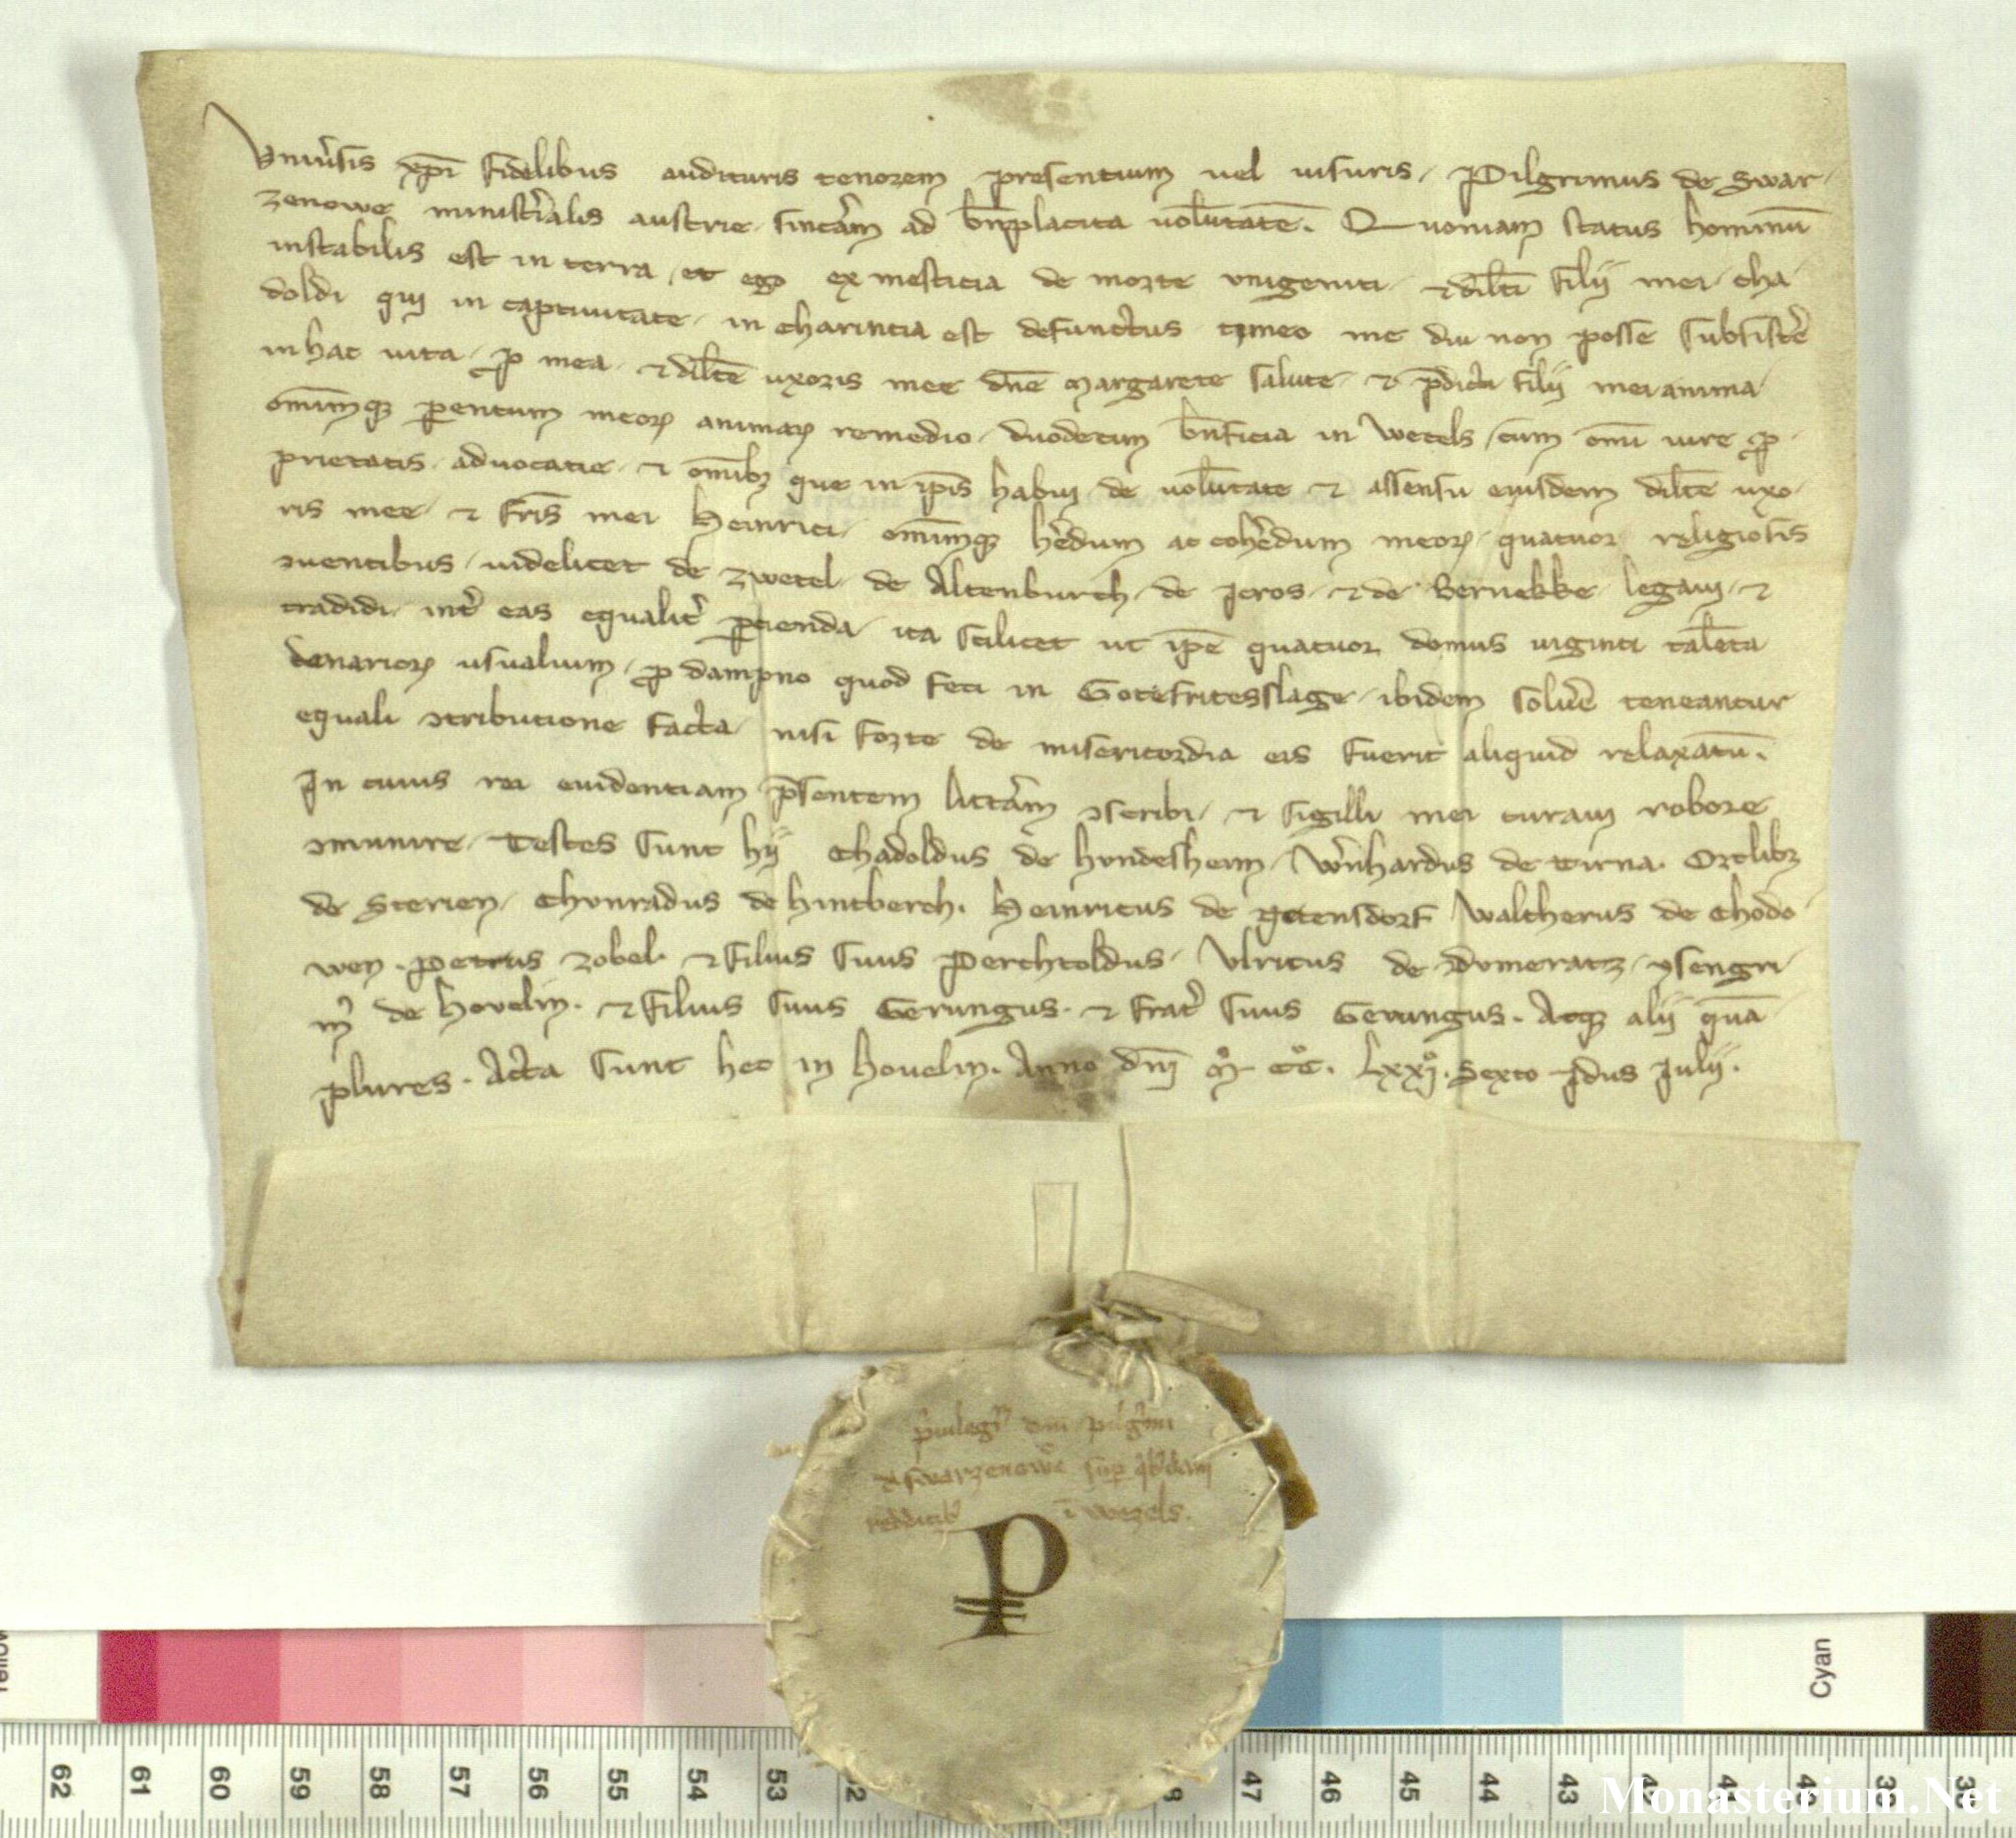 Vniũsis xp̄i fidelibus audituris tenorem presentium uel uisuris. Pilgrimus de Swar-
zenowe ministˀialis austrie. sincˀam ad bn̄placita uolūtatē. Quoniam status hominū
instabilis est in terra. et ego ex mesticia de morte vnigeniti. ⁊ dilc̄i filij mei. cha-
doldi qui in captiuitate. in charintia est defunctus. timeo me diu non posse subsistˀe
in hac uita. ꝓ mea. ⁊ dilc̄e uxoris mee dn̄e margarete salute. ⁊ p̄dicti filij mei anima
om̄iumqꝫ ꝑentum meoꝝ animaꝝ remedio. duodecim bn̄ficia in Wetels. cum om̄i iure ꝓ-
prietatis. aduocatie. ⁊ om̄ibꝫ que in ip̄is habui. de uolūtate ⁊ assensu eiusdem dilc̄e uxo-
ris mee. ⁊ fr̄is mei Heinrici. om̄iumqꝫ hˀedum ac cohˀedum meoꝝ. quatuor religiosis
ꝯuentibus. uidelicet de zwetel. de Altenburch. de Jeros. ⁊ de Bernekke. legaui. ⁊
tradidi. intˀ eas equalitˀ ꝑcienda. ita scilicet ut ip̄e quatuor domus uiginti talēta
denarioꝝ usualium. ꝓ dampno quod feci in Gotefritesslage. ibidem soluˀe teneantur
equali ꝯtributione facta. nisi forte de misericordia eis fuerit aliquid relaxatū.
Jn cuius rei euidentiam p̄sentem littˀam ꝯscribi. ⁊ sigilli mei curaui robore
ꝯmunire. Testes sunt hij Chadoldus de hvndesheim. Wˀnhardus de tirna. Ortlibꝫ
de Sterien. Chvnradus de hintberch. Heinricus de getensdorf Waltherus de Chodo-
wen. petrus zobel. ⁊ filius suus Perchtoldus. Vlricus de Domeratz. ysengri-
mꝰ de hovelin. ⁊ filius suus Gerungus. ⁊ fratˀ suus Gerungus. Atqꝫ alij quā-
plures. Acta sunt hec in houelin. Anno dn̄i M̊ CC̊. Lxxj̊. Sexto Jdus Julij.
p̄uilegiū dn̄i pilgˀmi
d̄ swarzenowe sup̄ qˀbꝰdam
redditibꝰ ī wezels.
P
62 61 60 59 58 57 56 55 54 53 52 47 46 45 44 43 42
Cyan
Monasterium.Net